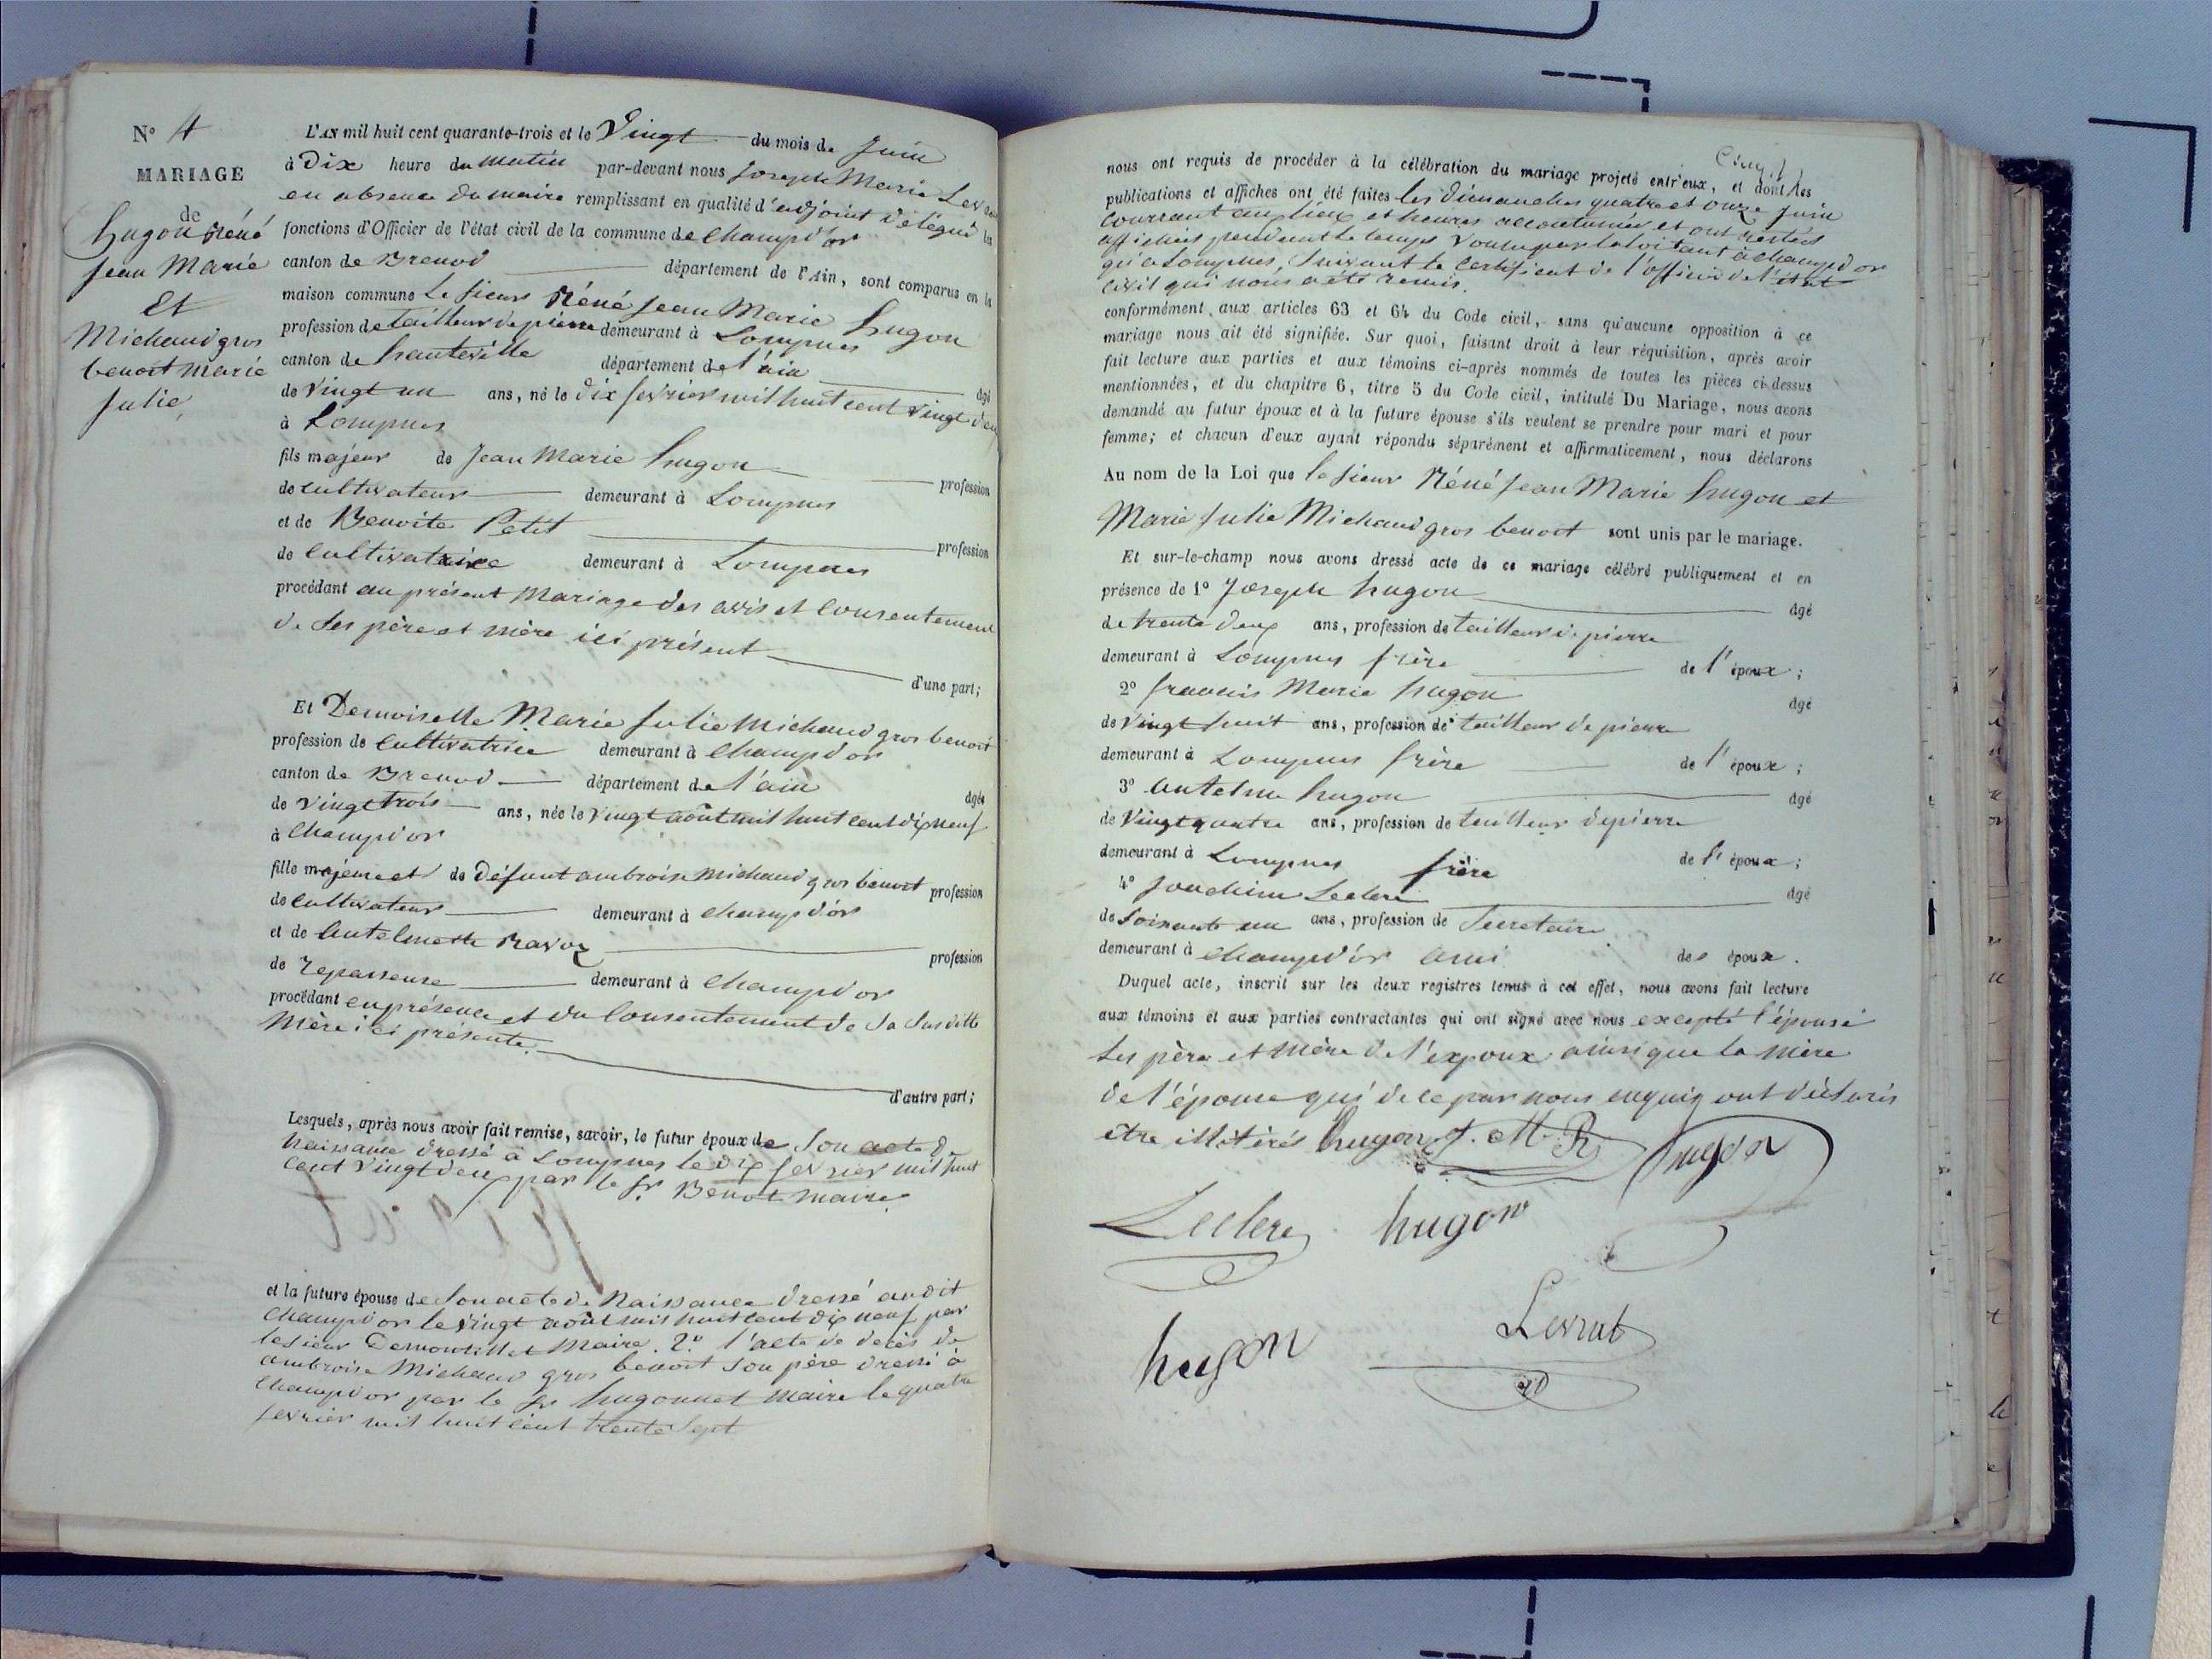 N° 4
MARIAGE
de
hugon Réné
Jean Marie
Et
Michaud gros
benoit marie
Julie,
L'AN mil huit cent quarante-trois et le Vingt du mois de Juin
à Dix heure du matin par-devant nous Joseph Marie
en absence du maire remplissant en qualité d'adjoint délégué les
fonctions d'Officier de l'état civil de la commune de Champd'or
canton de Brenod département de l'Ain, sont comparus en la
maison commune Le sieur Réné Jean Marie hugon
profession de tailleur de pierre demeurant à Lompnes
canton de hauteville département de l'ain
de Vingt un ans, né le dix fevrier mil huit cent vingt deux âgé
à Lompnes
fils majeur de Jean Marie hugon profession
de cultivateur demeurant à Lompnes
et de Benoite Petit profession
de cultivatrice demeurant à Lompnes
procédant au présent Mariage des avis et consentement
de ses père et mère ici présent
d'une part;
Et Demoiselle Marie Julie Michaud gros benoit
profession de cultivatrice demeurant à Champd'or
canton de Brenod département de l'ain
de vingt trois ans, née le vingt août mil huit cent dix neuf âgée
à Champd'or
fille majeure et de défunt ambroise Michaud gros benoit profession
de cultivateur demeurant à Champd'or
et de Antelmette Ravoz profession
de repasseuse demeurant à Champd'or
procédant en présence et du Consentement de Sa Susditte
Mère ici présente.
d'autre part;
Lesquels, après nous avoir fait remise, savoir, le futur époux de Son acte de
Naissance dressé à Lompnes le dix fevrier mil huit
cent vingt deux par le Sr. Benot maire.
et la future épouse de Son acte de Naissance dressé audit
Champd'or le vingt août mil huit cent dix neuf par
le sieur Maire. 2° l'acte de décès de
ambroise Michaud gros benoit son père dressé à
Champd'or par le Sr hugonnet Maire le quatre
fevrier mil huit cent trente Sept
nous ont requis de procéder à la célébration du mariage projeté entr'eux, et dont les
publications et affiches ont été faites les dimanches quatre et onze Juin
Courrant aux lieux et heures accoutumées et ont restées
affichées pendant le temps voulu par la loi tant à Champd'or
qu'a Lompnes, Suivant le Certificat de l'officier de l'état
civil qui nous a été remis.
conformément aux articles 63 et 64 du Code civil, sans qu'aucune opposition à ce
mariage nous ait été signifiée. Sur quoi, faisant droit à leur réquisition, après avoir
fait lecture aux parties et aux témoins ci-après nommés de toutes les pièces ci-dessus
mentionnées, et du chapitre 6, titre 5 du Code civil, intitulé Du Mariage, nous avons
demandé au futur époux et à la future épouse s'ils veulent se prendre pour mari et pour
femme; et chacun d'eux ayant répondu séparément et affirmativement, nous déclarons
Au nom de la Loi que le sieur Réné Jean Marie hugon et
Marie Julie Michaud gros benoit sont unis par le mariage.
Et sur-le-champ nous avons dressé acte de ce mariage célébré publiquement et en
présence de 1° Joseph hugon âgé
de trente deux ans, profession de tailleur de pierre
demeurant à Lompnes frère de l'époux;
2° francois Marie hugon âgé
de Vingt huit ans, profession de tailleur de pierre
demeurant à Lompnes frère de l'époux;
3° Antelme hugon âgé
de Vingt quatre ans, profession de tailleur de pierre
demeurant à Lompnes frère de l'époux;
4° Joachim Leclerc âgé
de Soixante un ans, profession de Secretaire
demeurant à Champd'or ami des époux.
Duquel acte, inscrit sur les deux registres tenus à cet effet, nous avons fait lecture
aux témoins et aux parties contractantes qui ont signé avec nous excepté l'épouse
Les père et Mère de l'expoux ainsi que la Mère
de l'épouse qui de ce par nous enquis ont déclarés
etre illitérés hugon J. M. R. hugon
Leclerc hugon
hugon Levrat